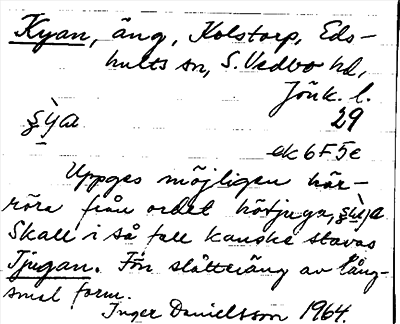 Kyan, äng, Kolstorp, Eds-
hults sn, S. Vedbo hd,
Jönk. l.
29
ek 6F5e
Uppges möjligen här-
röra från ordet hötjuga,
Skall i så fall kanske stavas
Tjugan. Fön slåtteräng av lång-
smal form.
Inger Danielsson 1964.